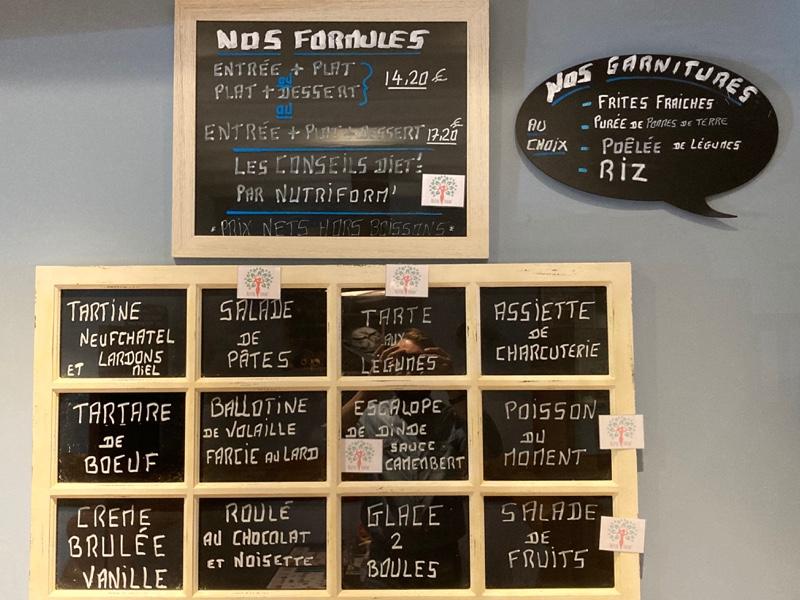 NOS FORMULES
ENTRÉE + PLAT
ou
PLAT + DESSERT
14,20 €
ou
ENTRÉE + PLAT + DESSERT 17,20 €
LES CONSEILS DIET!
PAR NUTRIFORM'
* PRIX NETS HORS BOISSONS *
NOS GARNITURES
AU CHOIX
- FRITES FRAICHES
- PURÉE DE POMMES DE TERRE
- POÊLÉE DE LÉGUMES
- RIZ
TARTINE
NEUFCHATEL
LARDONS
ET MIEL
SALADE
DE
PÂTES
TARTE
AUX
LÉGUMES
ASSIETTE
DE
CHARCUTERIE
TARTARE
DE
BOEUF
BALLOTINE
DE VOLAILLE
FARCIE AU LARD
ESCALOPE
DE DINDE
SAUCE
CAMEMBERT
POISSON
DU
MOMENT
CREME
BRULÉE
VANILLE
ROULÉ
AU CHOCOLAT
ET NOISETTE
GLACE
2
BOULES
SALADE
DE
FRUITS